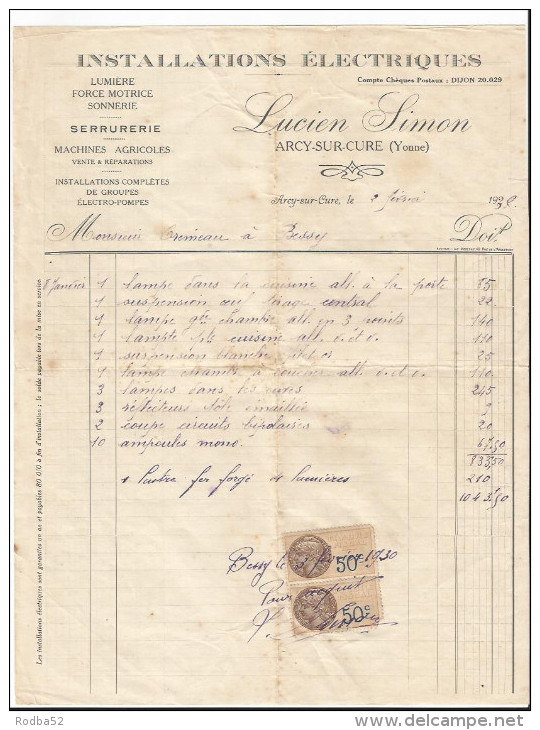 INSTALLATIONS ÉLECTRIQUES
Compte Chèques Postaux : DIJON 20.029
LUMIÈRE
FORCE MOTRICE
SONNERIE
SERRURERIE
MACHINES AGRICOLES
VENTE & RÉPARATIONS
INSTALLATIONS COMPLÈTES
DE GROUPES
ÉLECTRO-POMPES
Lucien Simon
ARCY-SUR-CURE (Yonne)
Arcy-sur-Cure, le 2 février 19
Monsieur à Bessy Doit
8 Janvier 1 lampe dans la cuisine all. à la porte 85
1 suspension central 22
1 lampe gde chambre all. en 3 140
1 cuisine all. d.o 110
1 suspension blanche 25
1 lampe chambre à coucher all. d.o. 110
3 lampes dans les 245
3 réflecteurs tôle émaillée 9
2 coupe circuits bipolaires 20
10 ampoules mono. 67,50
833,50
1 lustre fer forgé 4 lumières 210
1043,50
Bessy le février 1930
Pour acquit
50c
50c
Les installations électriques sont garanties un an et payables 80 0/0 à fin d'installation ; le solde payable lors de la mise en service.
Rodba52
www.delcampe.net